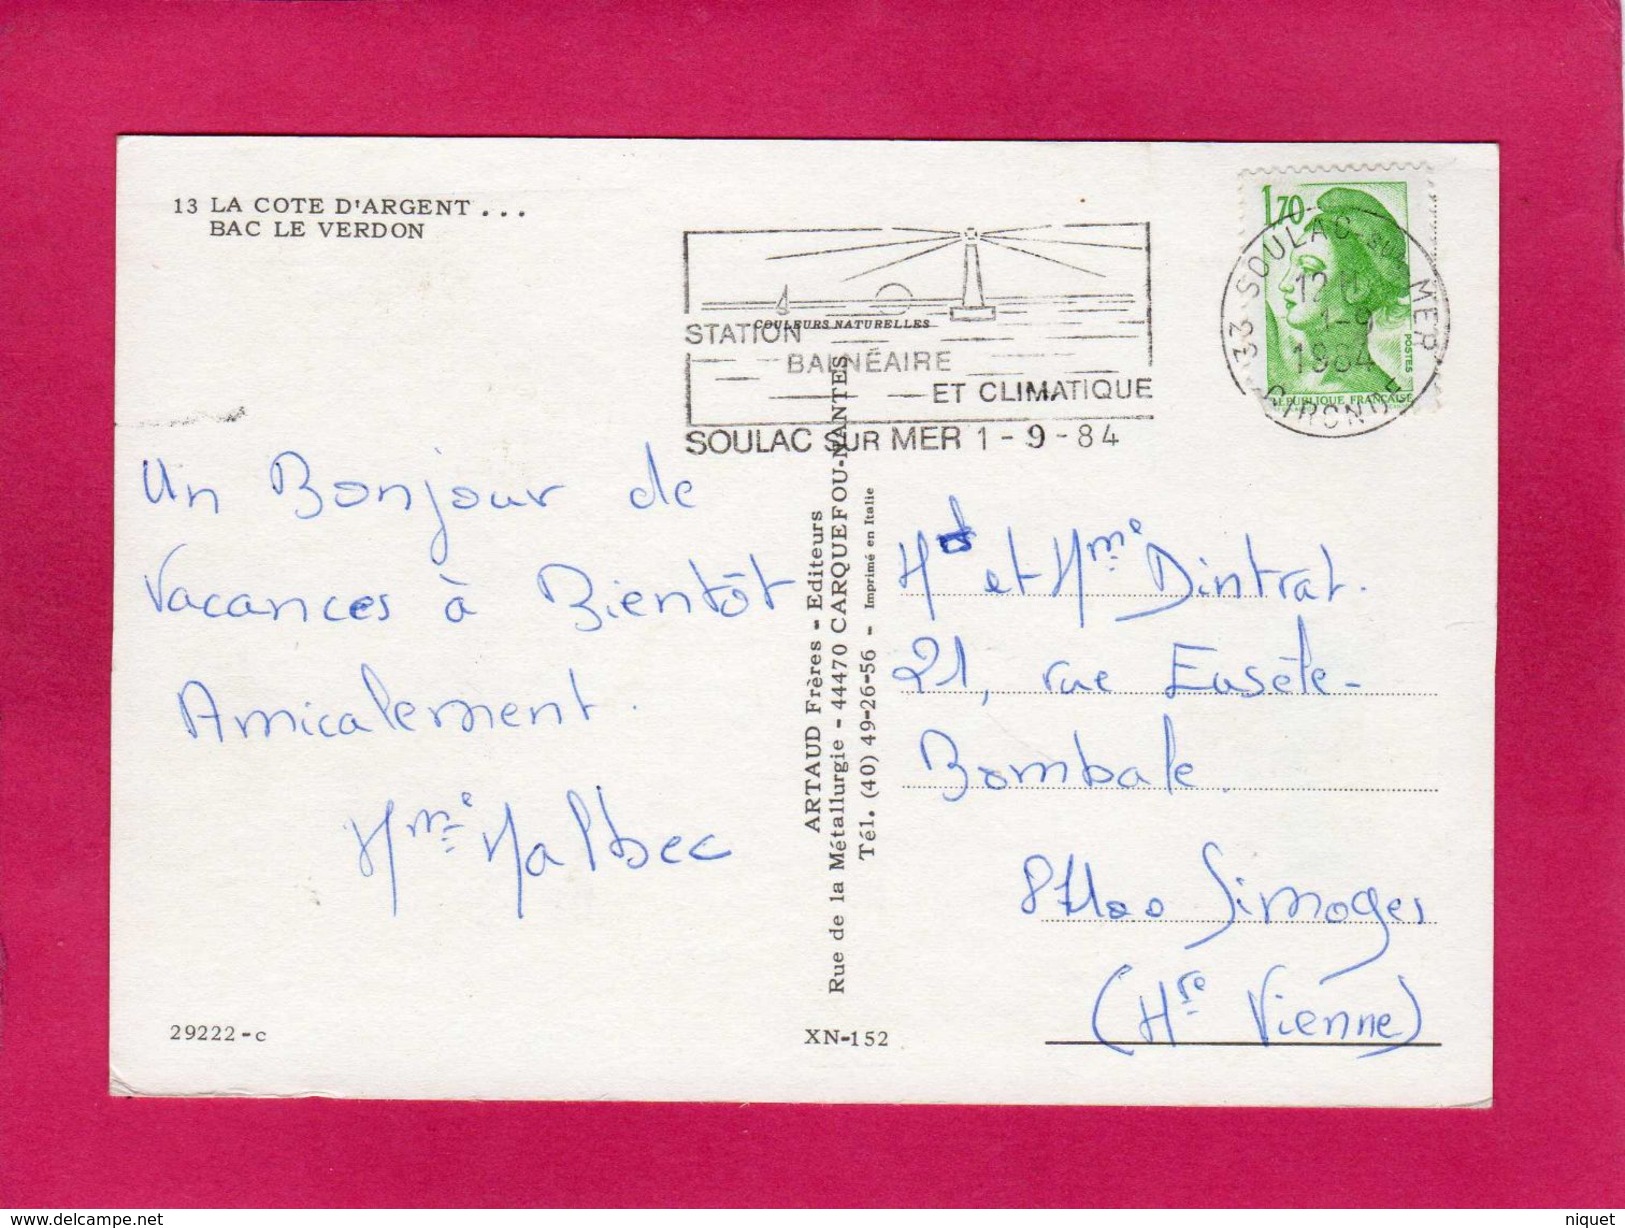 13 LA COTE D'ARGENT...
BAC LE VERDON
COULEURS NATURELLES
STATION
BALNÉAIRE
ET CLIMATIQUE
SOULAC SUR MER 1-9-84
1,70
POSTES
REPUBLIQUE FRANCAISE
33 SOULAC SUR MER
12 H
1-9
1984
GIRONDE
Un Bonjour de
Vacances à Bientôt
Amicalement.
Mme Malbec
ARTAUD Frères - Editeurs
Rue de la Métallurgie - 44470 CARQUEFOU-NANTES
Tél. (40) 49-26-56 - Imprimé en Italie
et Mme Dintrat.
21, rue
Bombale.
Limoges
(Hte Vienne)
29222-c
XN-152
niquet